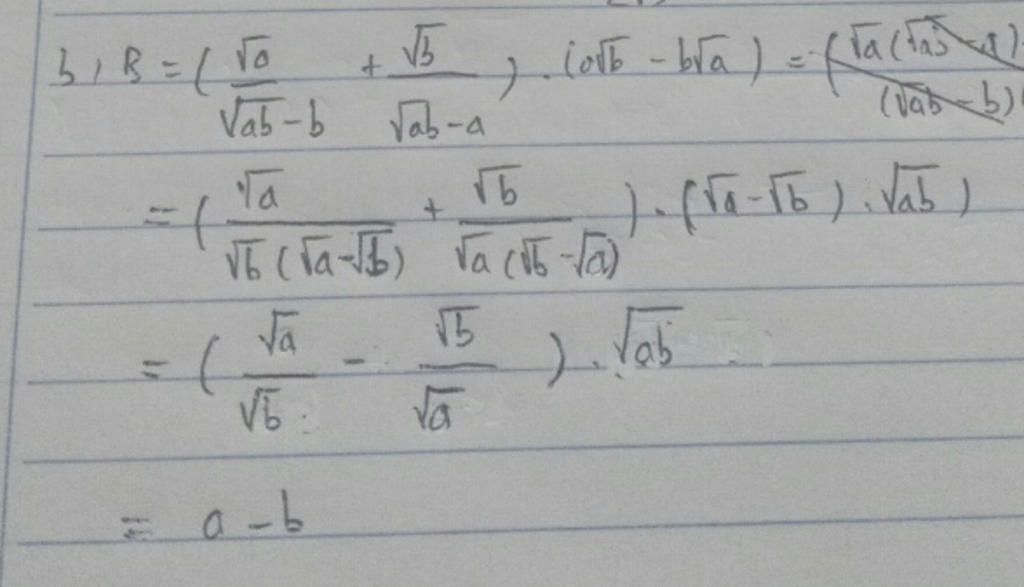 b, B = ( √a / (√ab - b) + √b / (√ab - a) ) . (a√b - b√a) = ( √a (√ab - a) / (√ab - b)(
= ( √a / (√b (√a - √b)) + √b / (√a (√b - √a)) ) . (√a - √b) . √ab )
= ( √a / √b - √b / √a ) . √ab
= a - b